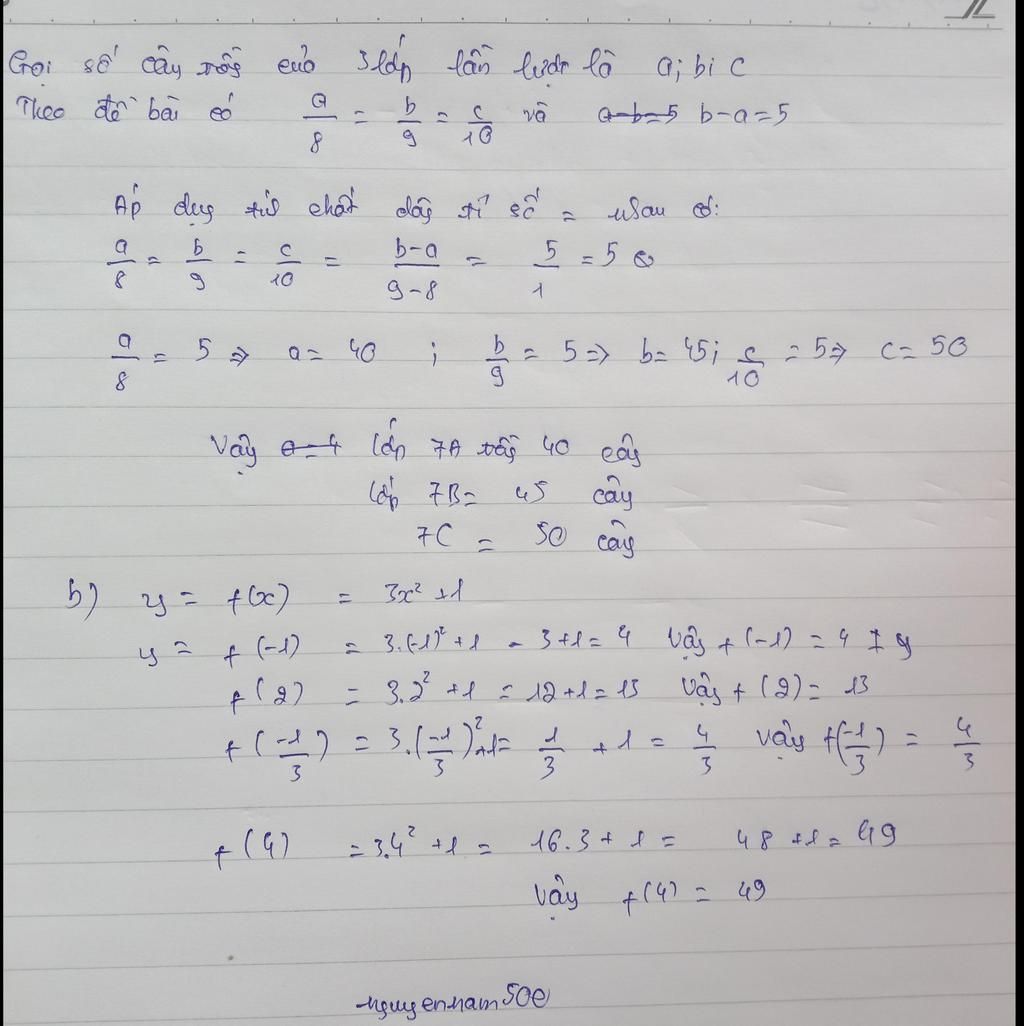 Gọi số cây trồng của 3 lớp lần lượt là a; b; c
Theo đề bài có a/8 = b/9 = c/10 và a-b=5 b-a=5
Áp dụng t/c chất dãy tỉ số = nhau có:
a/8 = b/9 = c/10 = b-a/9-8 = 5/1 = 5
a/8 = 5 => a = 40 ; b/9 = 5 => b = 45; c/10 = 5 => c = 50
Vậy a=4 lớp 7A trồng 40 cây
lớp 7B = 45 cây
7C = 50 cây
b) y = f(x) = 3x² + 1
y = f(-1) = 3.(-1)² + 1 = 3+1 = 4 Vậy f(-1) = 4
f(2) = 3.2² + 1 = 12+1 = 13 Vậy f(2) = 13
f(-1/3) = 3.(-1/3)² +1 = 1/3 + 1 = 4/3 Vậy f(-1/3) = 4/3
f(4) = 3.4² + 1 = 16.3 + 1 = 48 + 1 = 49
Vậy f(4) = 49
nguyennam50e